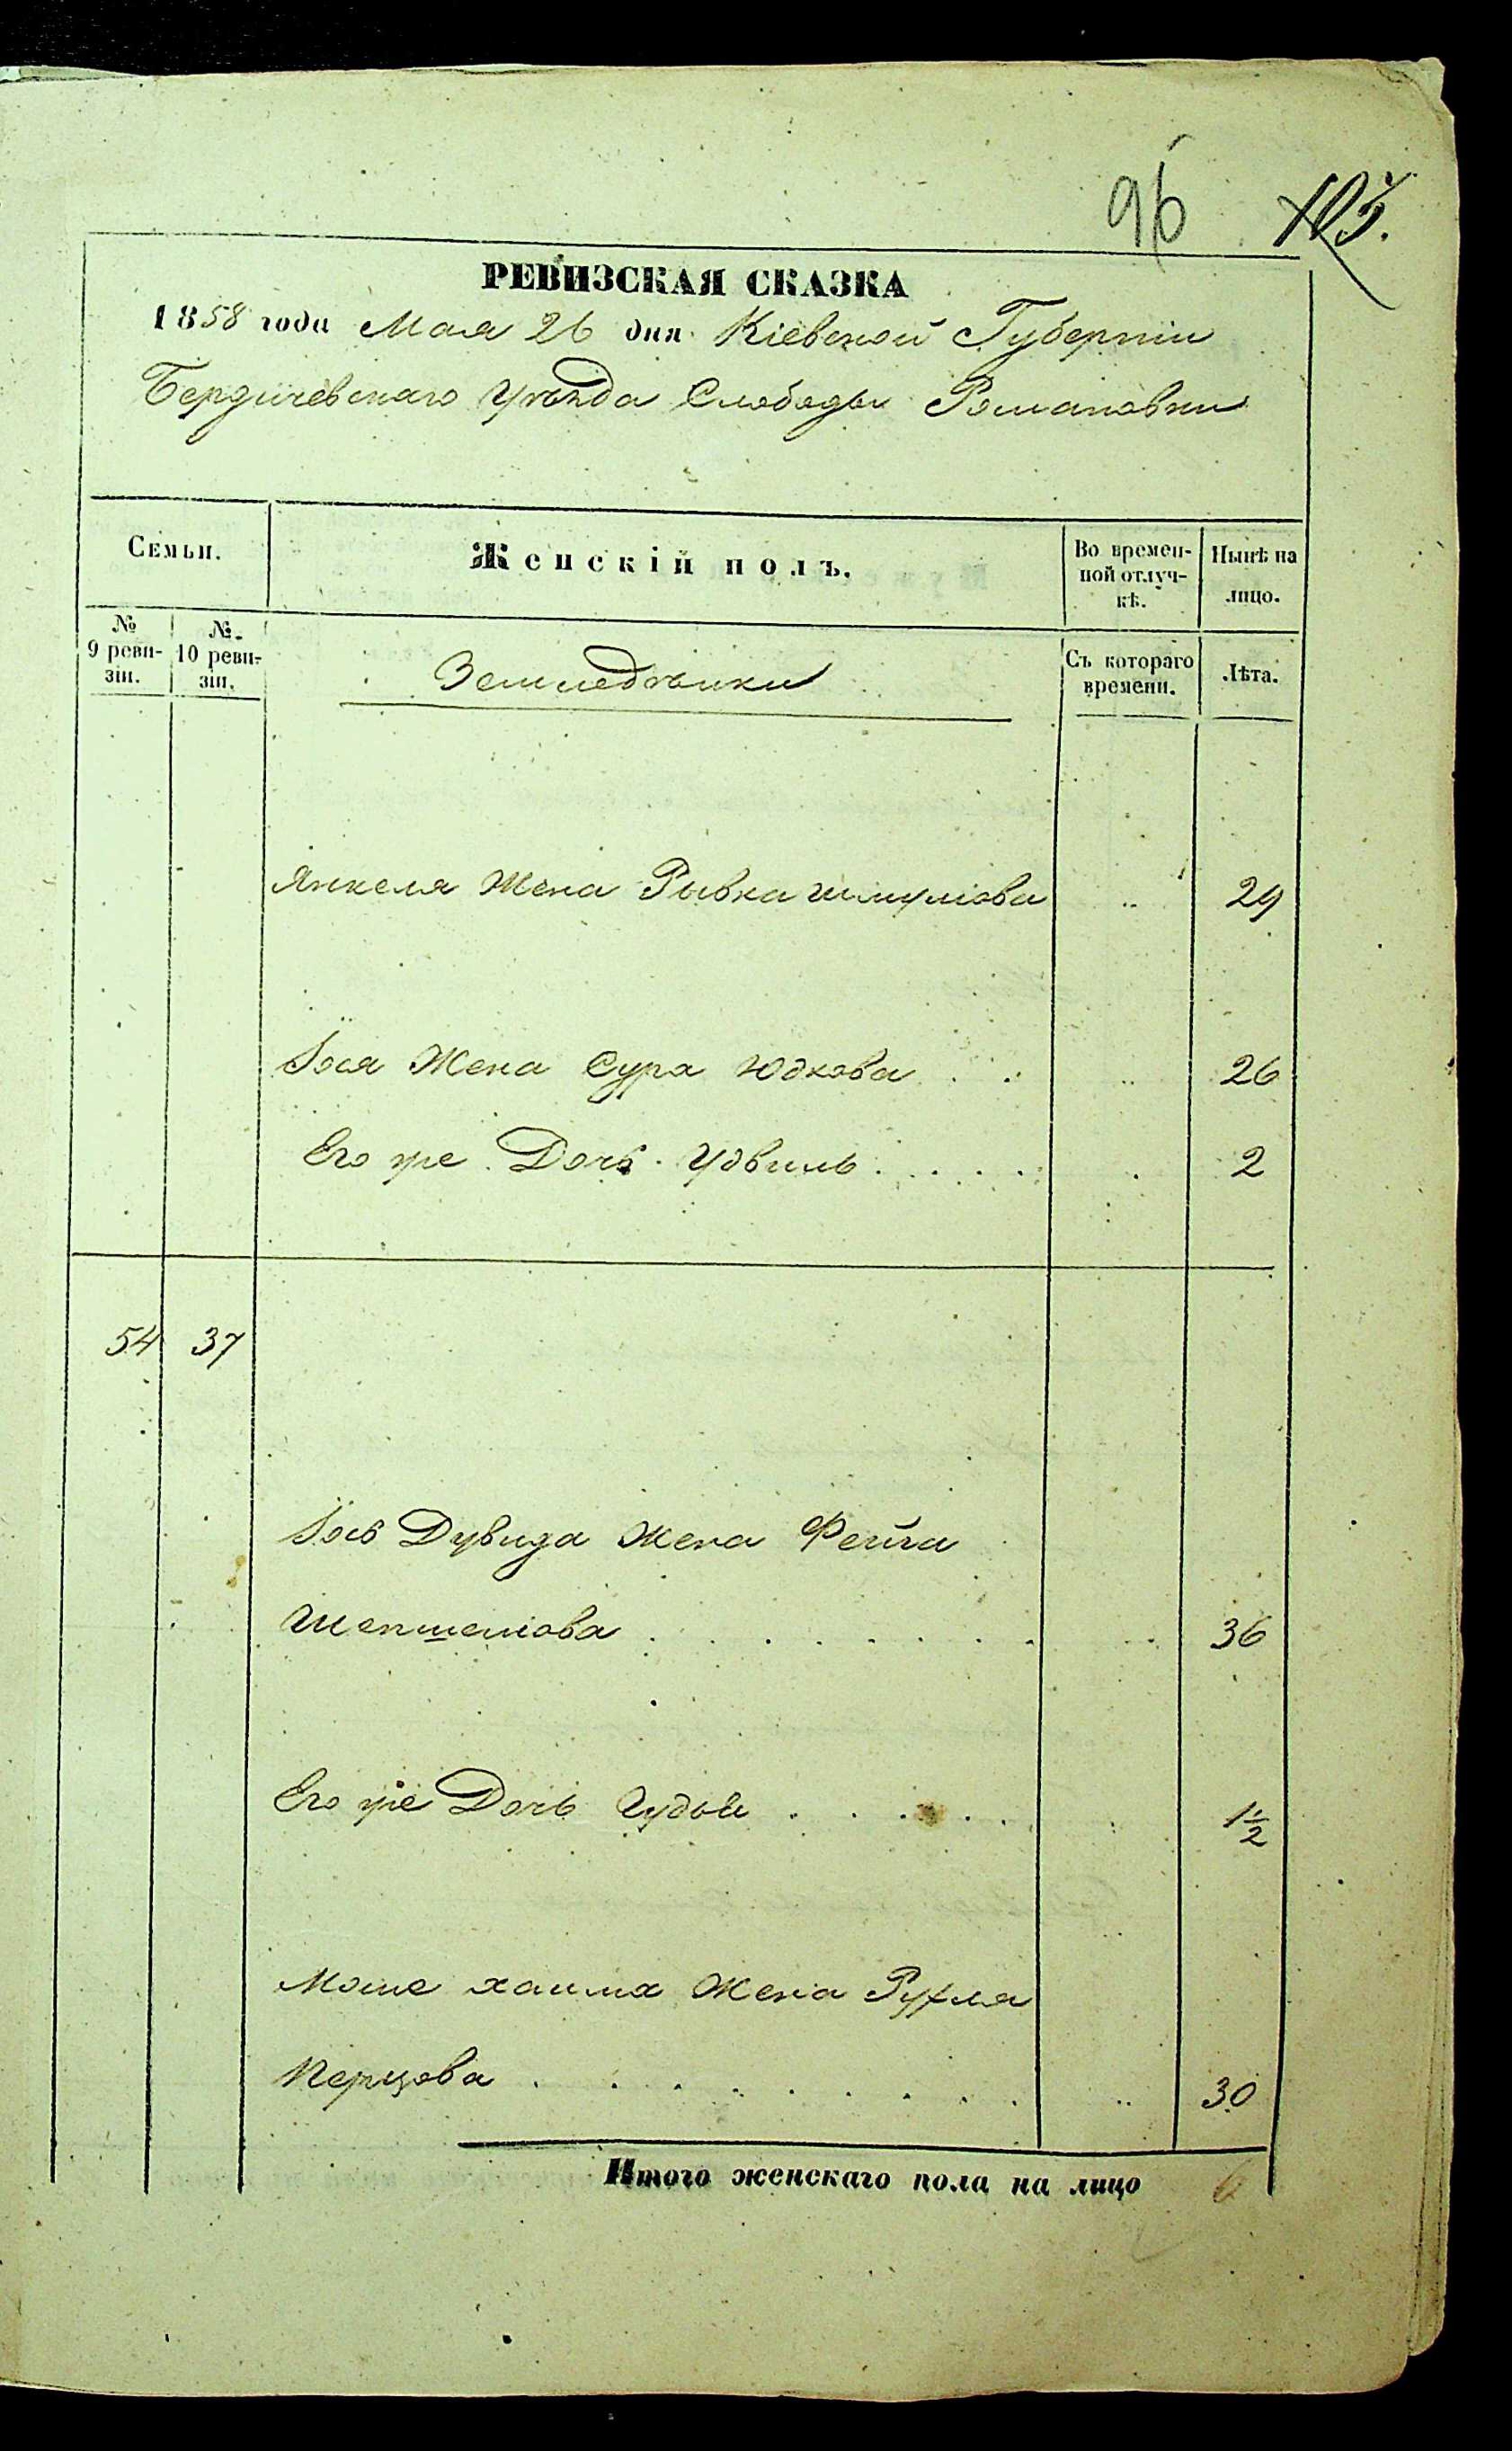 96 105.
РЕВИЗСКАЯ СКАЗКА
1858 года Мая 26 дня Кіевской Губерніи
Бердичевскаго Уѣзда Слободы Романовки
Семьи.
Женскій полъ.
Во времен-
ной отлуч-
кѣ.
Нынѣ на
лицо.
№
9 реви-
зіи.
№.
10 реви-
зіи.
Земледѣльцы
Съ котораго
времени.
Лѣта.
Янкеля Жена Рывка Шмулiова .. 29
Іося Жена Сура Юдкова . . .. 26
Его же Дочь Удвиль . . . . . 2
54 37
Іось Дувида Жена Фейга
Шепшелiова . . . . . . . .. 36
Его же Дочь . . . . . 1 1/2
Моше Хаима Жена Рухля
Перцова . . . . . . . . . .. 30
Итого женскаго пола на лицо 6